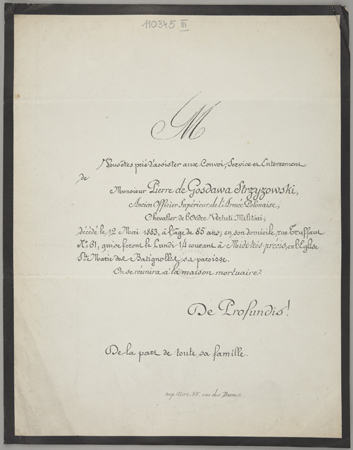 110345 III
M
Vous êtes prié d'assister aux Convoi, Service et Enterrement
de
Monsieur Pierre de Gosdawa Strzyzowski,
Ancien Officier Supérieur de l'Armée Polonaise,
Chevalier de l'Ordre Virtuti Militari;
décédé le 12 Mai 1883, à l'âge de 85 ans; en son domicile, rue Truffaut
N° 61, qui se feront le Lundi 14 courant, à Midi très précis, en l'Eglise
Ste Marie des Batignolles, sa paroisse.
On se réunira à la maison mortuaire.
De Profundis!
De la part de toute sa famille.
rue des Dames